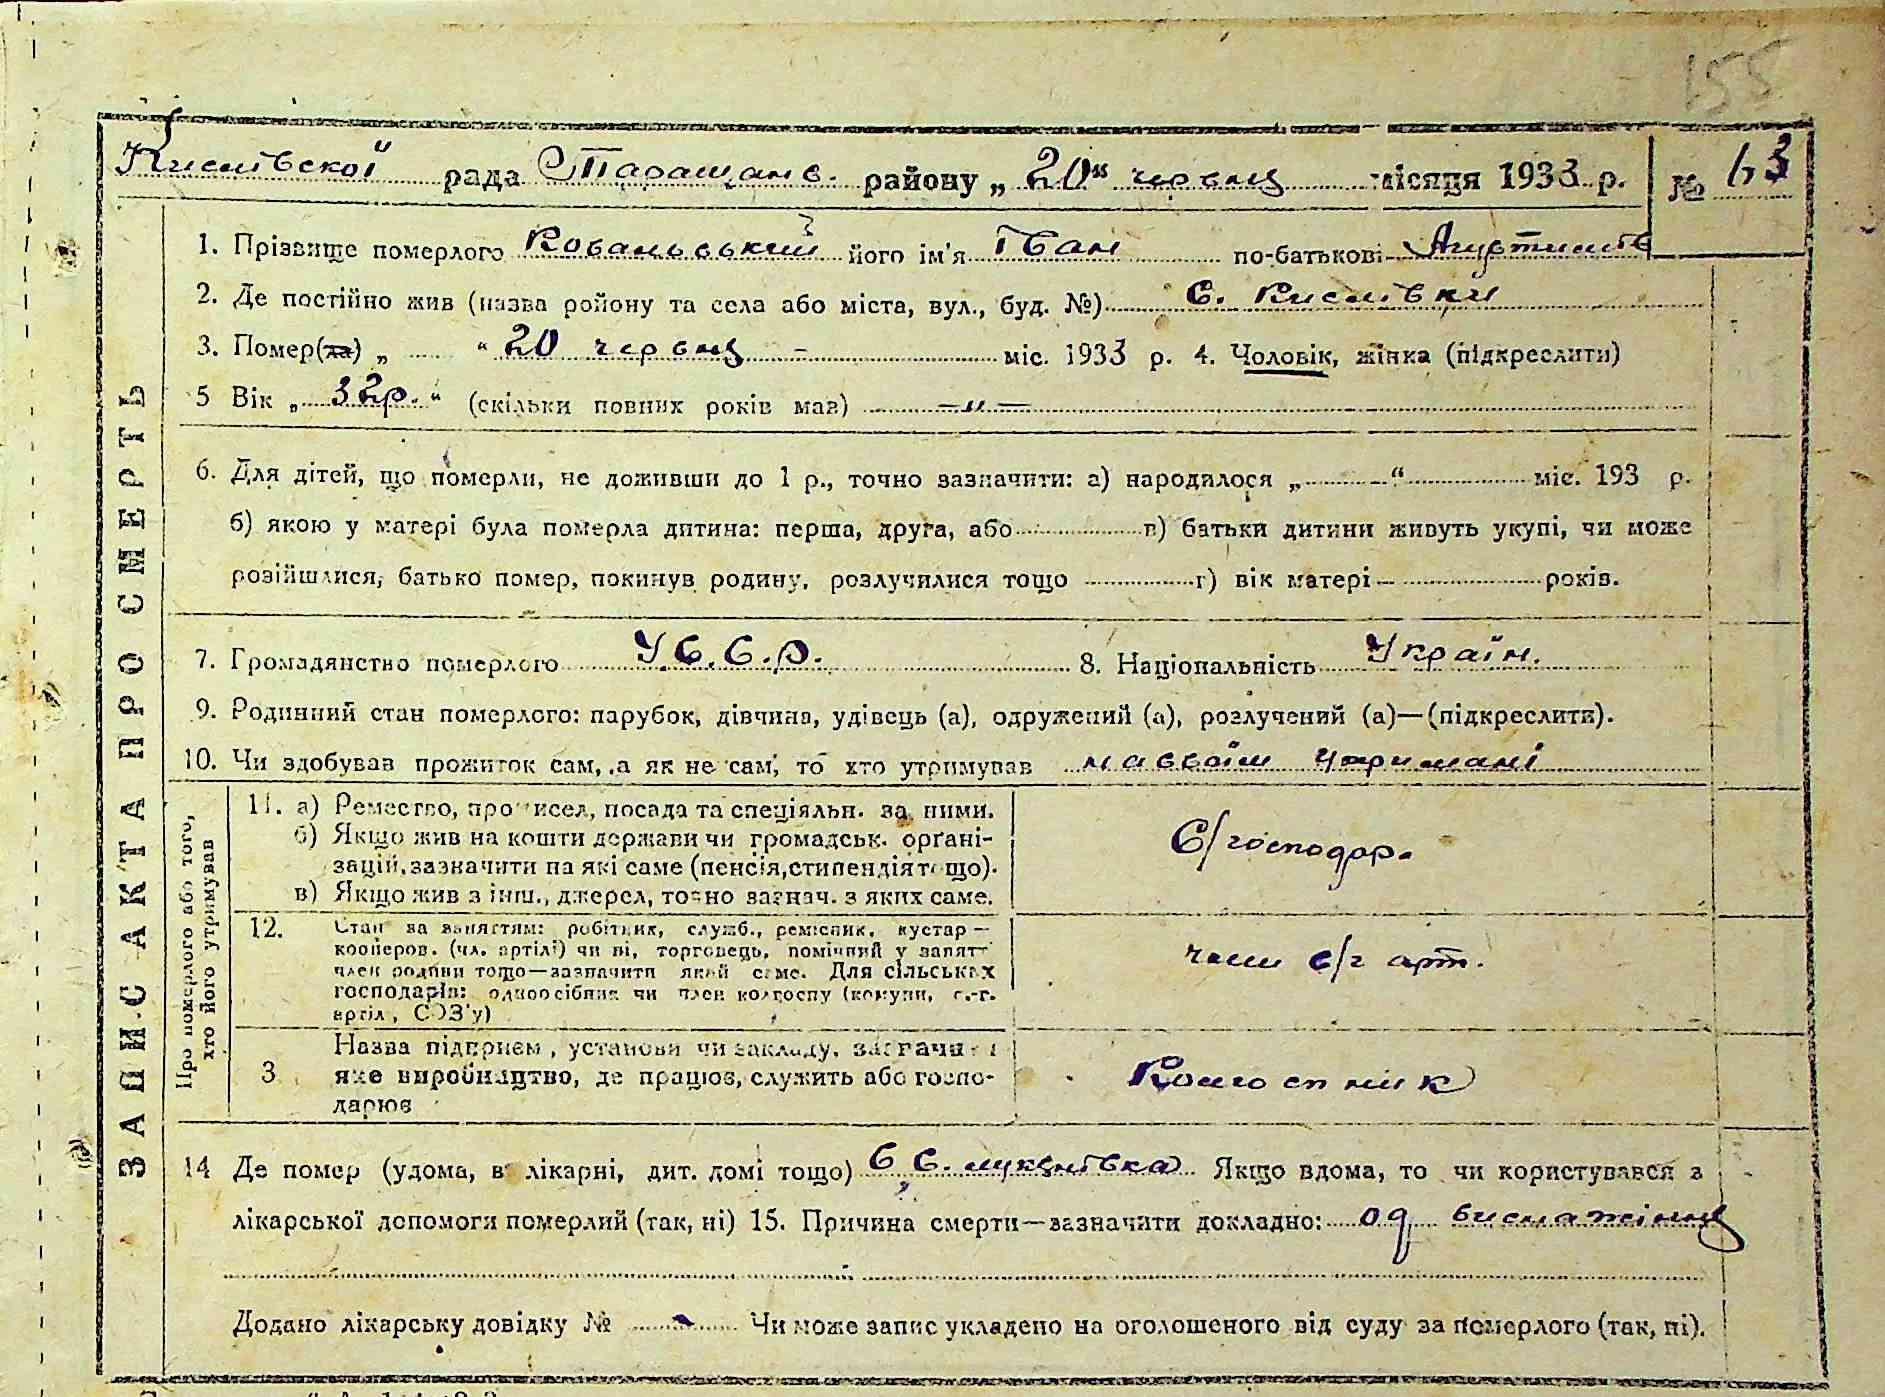 155
Кислівської рада Таращанв. району „20“ червня місяця 1933 р. № 63
1. Прізвище померлого Кованьський його ім'я Іван по-батькові
2. Де постійно жив (назва ройону та села або міста, вул., буд. №) С. Кислівки
3. Помер(ла) „ “ 20 червня – міс. 1933 р. 4. Чоловік, жінка (підкреслити)
5 Вік „ 32р. “ (скільки повних років мав) –„–
6. Для дітей, що померли, не доживши до 1 р., точно зазначити: а) народилося „ “ міс. 193 р.
б) якою у матері була померла дитина: перша, друга, або в) батьки дитини живуть укупі, чи може
розійшлися, батько помер, покинув родину, розлучилися тощо г) вік матері років.
7. Громадянство померлого У.С.С.Р. 8. Національність Україн.
9. Родинний стан померлого: парубок, дівчина, удівець (а), одружений (а), розлучений (а)—(підкреслити).
10. Чи здобував прожиток сам, а як не сам, то хто утримував насвоїм утримані
ЗАПИС АКТА ПРО СМЕРТЬ
Про померлого або того, хто його утримував
11. а) Ремество, промисел, посада та спеціяльн. за ними.
б) Якщо жив на кошти держави чи громадськ. орґані-
зацій, зазначити на які саме (пенсія, стипендія тощо).
в) Якщо жив з інш., джерел, точно зазнач. з яких саме.
С/господар.
12. Стан за заняттям: робітник, служб., ремісник, кустар—
кооперов. (чл. артілі) чи ні, торговець, помічний у занятт
член родини тощо—зазначити який саме. Для сільських
господарів: одноосібник чи член колгоспу (комуни, с.-г.
артіл, СОЗ'у)
член с/г арт.
3 Назва підприєм, установи чи закладу, зазначи
яке виробництво, де працює, служить або госпо-
дарює
Колгоспник
14 Де помер (удома, в лікарні, дит. домі тощо) в с. Лукянівка Якщо вдома, то чи користувався з
лікарської допомоги померлий (так, ні) 15. Причина смерти—зазначити докладно: од виснажіння
Додано лікарську довідку № Чи може запис укладено на оголошеного від суду за померлого (так, ні).